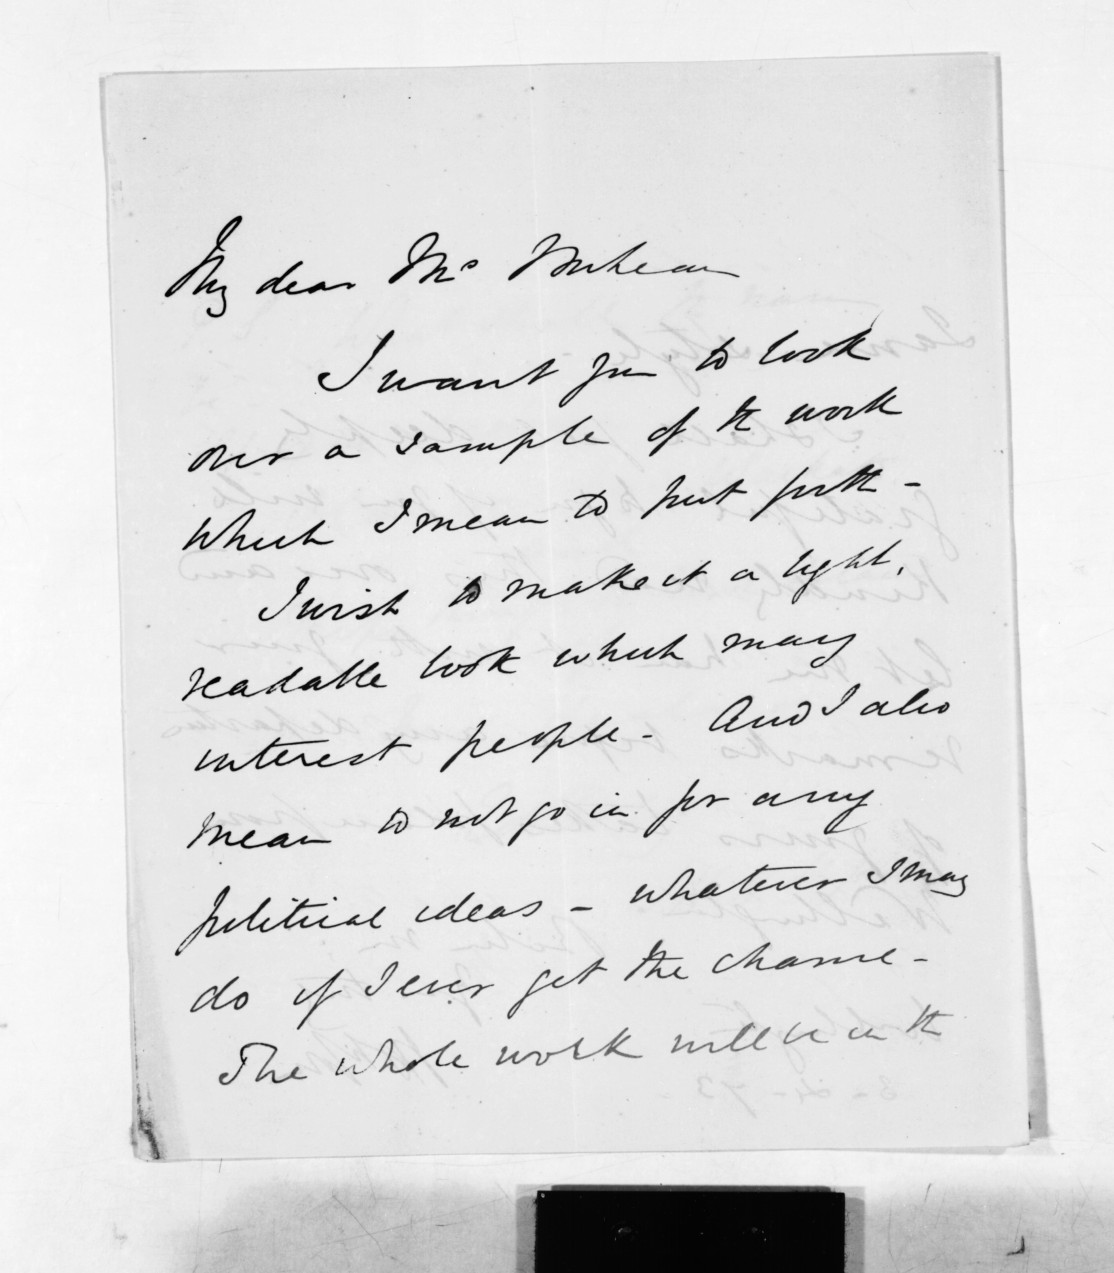 My dear Mc
I want you to look
over a sample of the work
which I mean to put forth -
I wish to make it a light,
readable book which may
interest people - And I also
mean to not go in for any
political ideas - whatever I may
do if I ever get the chance -
The whole work will be in the